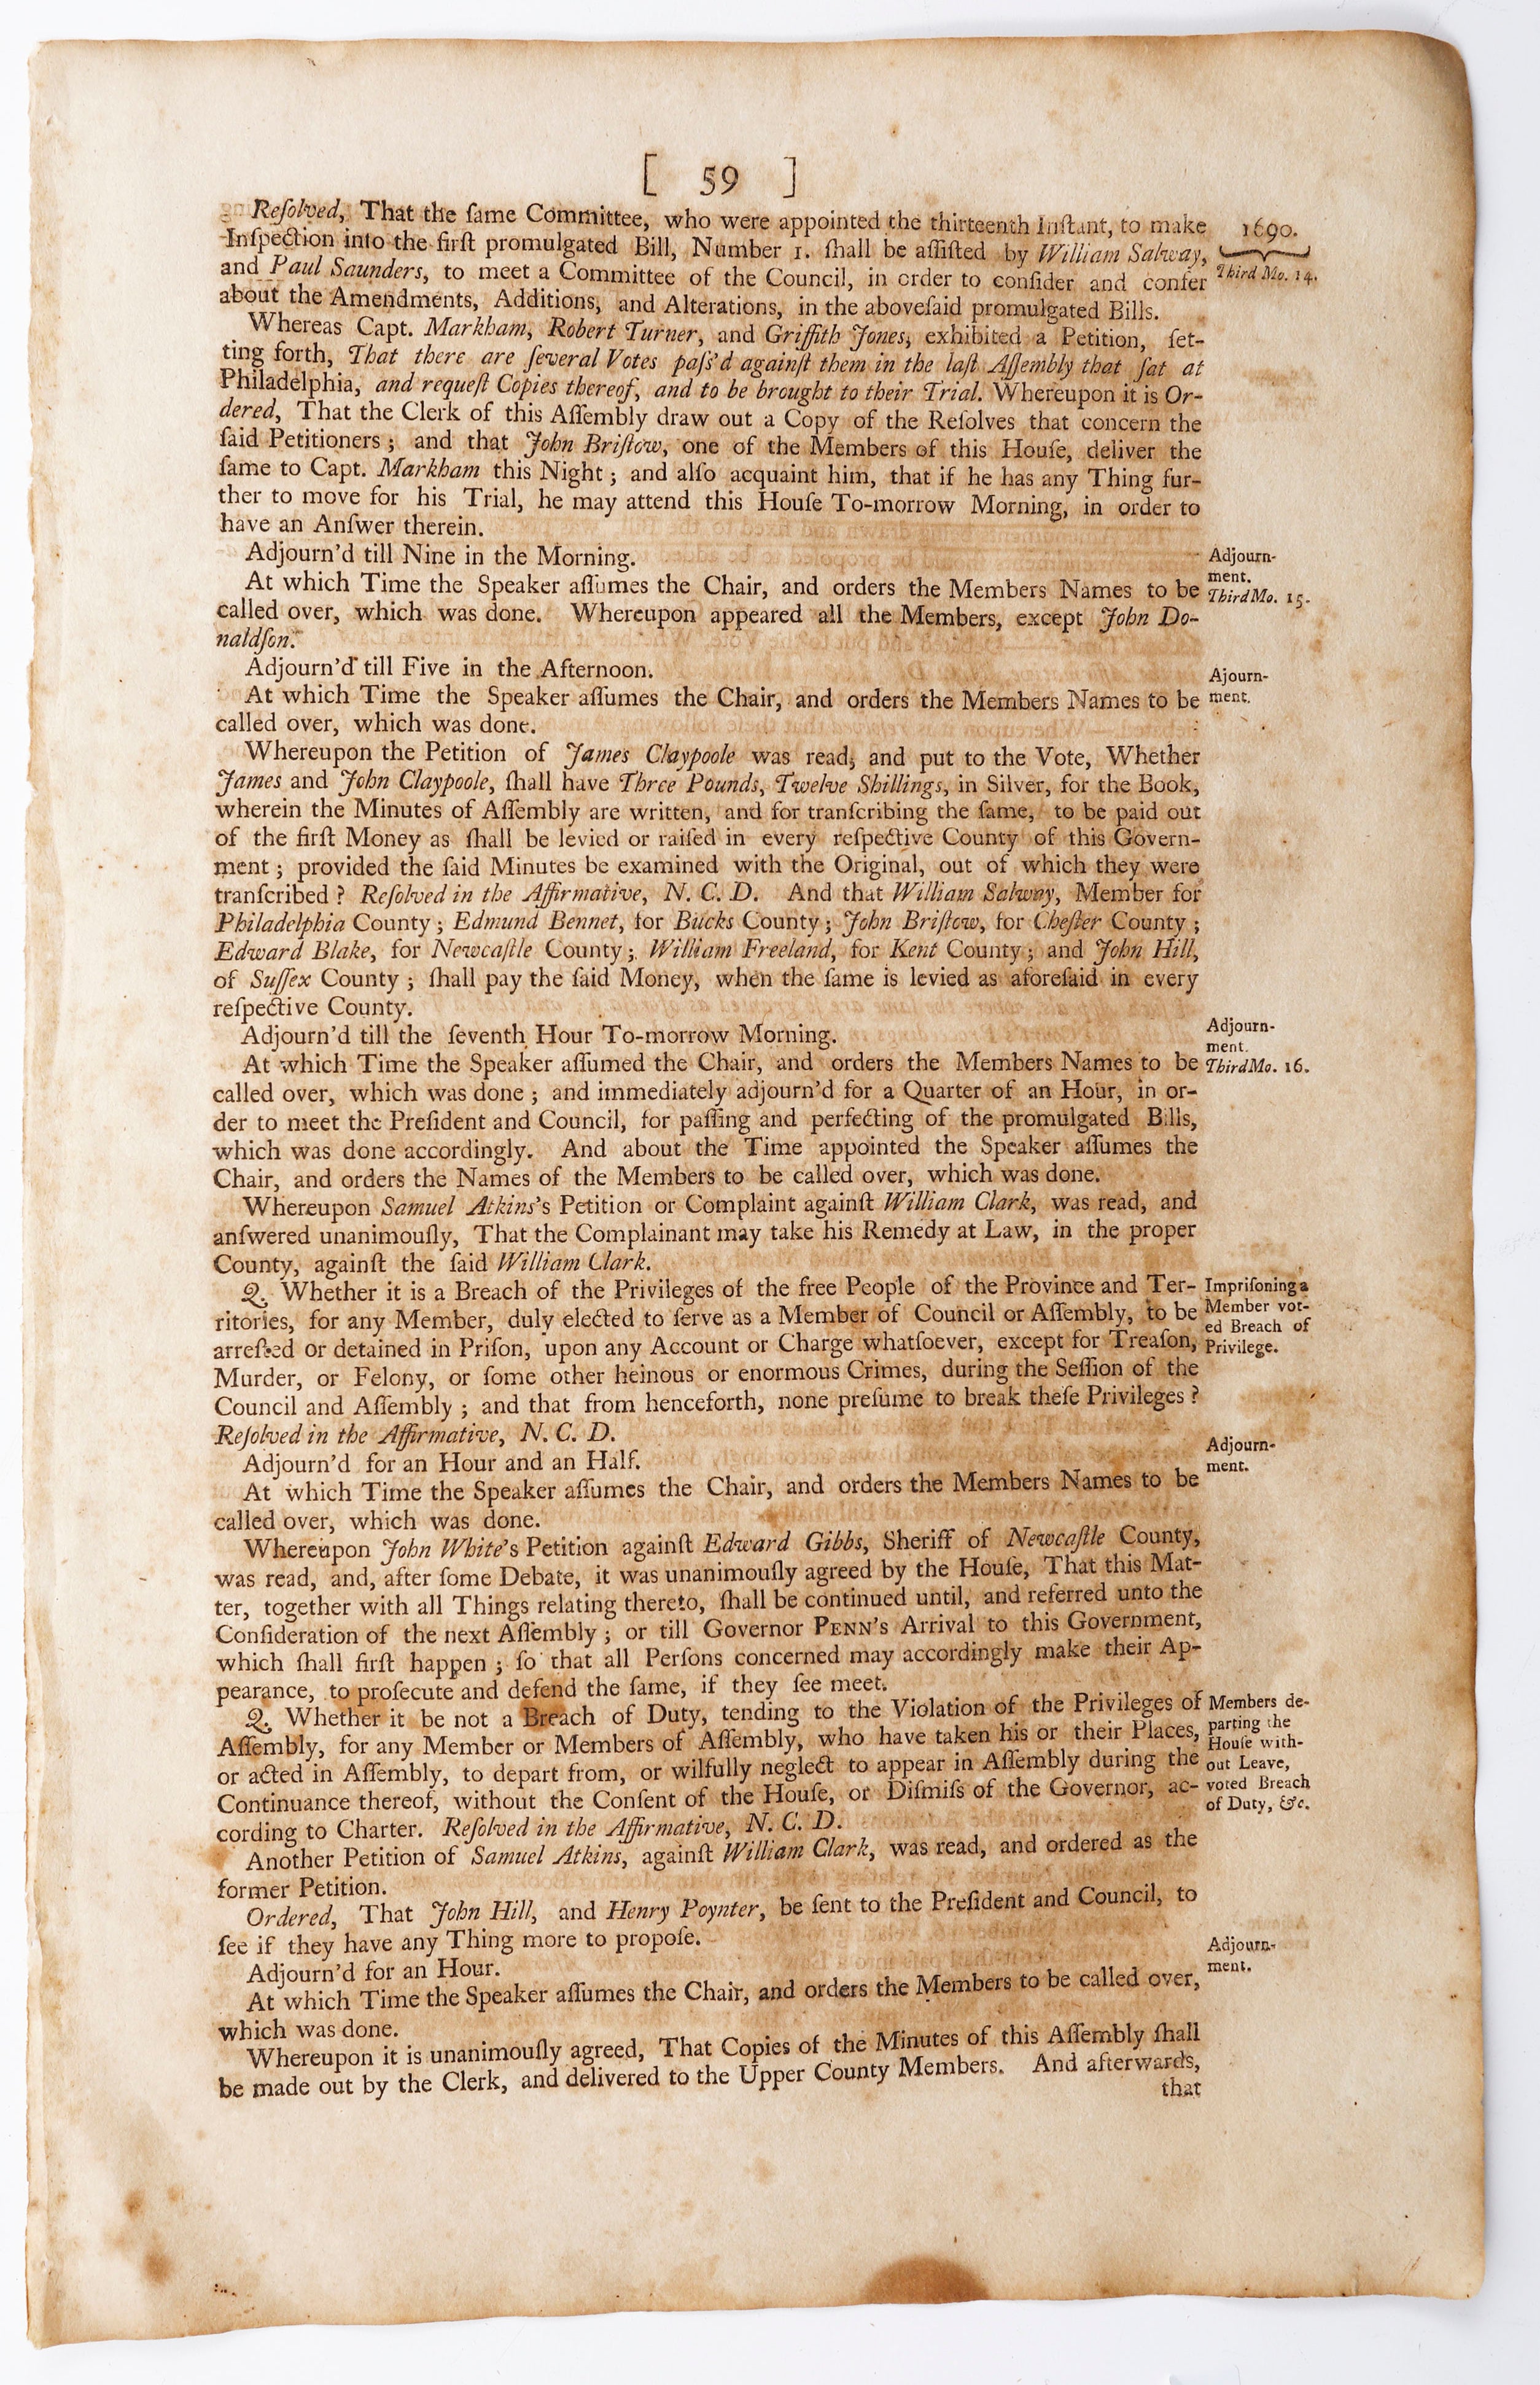 [ 59 ]
Reſolved, That the ſame Committee, who were appointed the thirteenth Inſtant, to make
Inſpection into the firſt promulgated Bill, Number 1. ſhall be aſſiſted by William Salway,
and Paul Saunders, to meet a Committee of the Council, in order to conſider and confer
about the Amendments, Additions, and Alterations, in the aboveſaid promulgated Bills.
1690.
Third Mo. 14.
Whereas Capt. Markham, Robert Turner, and Griffith Jones, exhibited a Petition, ſet-
ting forth, That there are ſeveral Votes paſs'd againſt them in the laſt Aſſembly that ſat at
Philadelphia, and requeſt Copies thereof, and to be brought to their Trial. Whereupon it is Or-
dered, That the Clerk of this Aſſembly draw out a Copy of the Reſolves that concern the
ſaid Petitioners; and that John Briſtow, one of the Members of this Houſe, deliver the
ſame to Capt. Markham this Night; and alſo acquaint him, that if he has any Thing fur-
ther to move for his Trial, he may attend this Houſe To-morrow Morning, in order to
have an Anſwer therein.
Adjourn'd till Nine in the Morning.
At which Time the Speaker aſſumes the Chair, and orders the Members Names to be
called over, which was done. Whereupon appeared all the Members, except John Do-
naldſon.
Adjourn-
ment.
Third Mo. 15.
Adjourn'd till Five in the Afternoon.
At which Time the Speaker aſſumes the Chair, and orders the Members Names to be
called over, which was done.
Ajourn-
ment.
Whereupon the Petition of James Claypoole was read, and put to the Vote, Whether
James and John Claypoole, ſhall have Three Pounds, Twelve Shillings, in Silver, for the Book,
wherein the Minutes of Aſſembly are written, and for tranſcribing the ſame, to be paid out
of the firſt Money as ſhall be levied or raiſed in every reſpective County of this Govern-
ment; provided the ſaid Minutes be examined with the Original, out of which they were
tranſcribed? Reſolved in the Affirmative, N. C. D. And that William Salway, Member for
Philadelphia County; Edmund Bennet, for Bucks County; John Briſtow, for Cheſter County;
Edward Blake, for Newcaſtle County; William Freeland, for Kent County; and John Hill,
of Suſſex County; ſhall pay the ſaid Money, when the ſame is levied as aforeſaid in every
reſpective County.
Adjourn'd till the ſeventh Hour To-morrow Morning.
At which Time the Speaker aſſumed the Chair, and orders the Members Names to be
called over, which was done; and immediately adjourn'd for a Quarter of an Hour, in or-
der to meet the Preſident and Council, for paſſing and perfecting of the promulgated Bills,
which was done accordingly. And about the Time appointed the Speaker aſſumes the
Chair, and orders the Names of the Members to be called over, which was done.
Adjourn-
ment.
Third Mo. 16.
Whereupon Samuel Atkins's Petition or Complaint againſt William Clark, was read, and
anſwered unanimouſly, That the Complainant may take his Remedy at Law, in the proper
County, againſt the ſaid William Clark.
Q. Whether it is a Breach of the Privileges of the free People of the Province and Ter-
ritories, for any Member, duly elected to ſerve as a Member of Council or Aſſembly, to be
arreſted or detained in Priſon, upon any Account or Charge whatſoever, except for Treaſon,
Murder, or Felony, or ſome other heinous or enormous Crimes, during the Seſſion of the
Council and Aſſembly; and that from henceforth, none preſume to break theſe Privileges?
Reſolved in the Affirmative, N. C. D.
Impriſoning a
Member vot-
ed Breach of
Privilege.
Adjourn'd for an Hour and an Half.
At which Time the Speaker aſſumes the Chair, and orders the Members Names to be
called over, which was done.
Adjourn-
ment.
Whereupon John White's Petition againſt Edward Gibbs, Sheriff of Newcaſtle County,
was read, and, after ſome Debate, it was unanimouſly agreed by the Houſe, That this Mat-
ter, together with all Things relating thereto, ſhall be continued until, and referred unto the
Conſideration of the next Aſſembly; or till Governor PENN'S Arrival to this Government,
which ſhall firſt happen; ſo that all Perſons concerned may accordingly make their Ap-
pearance, to proſecute and defend the ſame, if they ſee meet.
Q. Whether it be not a Breach of Duty, tending to the Violation of the Privileges of
Aſſembly, for any Member or Members of Aſſembly, who have taken his or their Places,
or acted in Aſſembly, to depart from, or wilfully neglect to appear in Aſſembly during the
Continuance thereof, without the Conſent of the Houſe, or Diſmiſs of the Governor, ac-
cording to Charter. Reſolved in the Affirmative, N. C. D.
Members de-
parting the
Houſe with-
out Leave,
voted Breach
of Duty, &c.
Another Petition of Samuel Atkins, againſt William Clark, was read, and ordered as the
former Petition.
Ordered, That John Hill, and Henry Poynter, be ſent to the Preſident and Council, to
ſee if they have any Thing more to propoſe.
Adjourn'd for an Hour.
At which Time the Speaker aſſumes the Chair, and orders the Members to be called over,
which was done.
Adjourn-
ment.
Whereupon it is unanimouſly agreed, That Copies of the Minutes of this Aſſembly ſhall
be made out by the Clerk, and delivered to the Upper County Members. And afterwards,
that